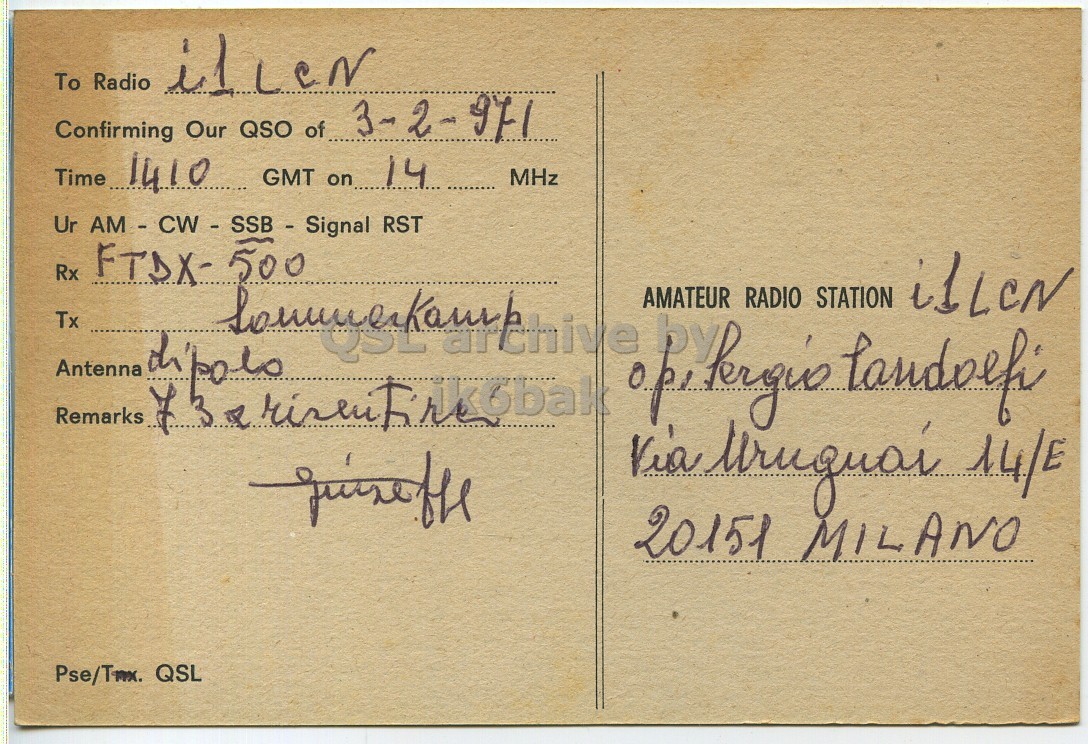 To Radio i1LCN
Confirming Our QSO of 3-2-971
Time 1410 GMT on 14 MHz
Ur AM - CW - SSB - Signal RST
Rx FTDX-500
Tx Sommerkamp
Antenna dipolo
Remarks 73 a risentirci
Giuseppe
Pse/Tnx. QSL
AMATEUR RADIO STATION i1LCN
op. Sergio Landolfi
Via Uruguai 14/E
20151 MILANO
QSL archive by
ik6bak